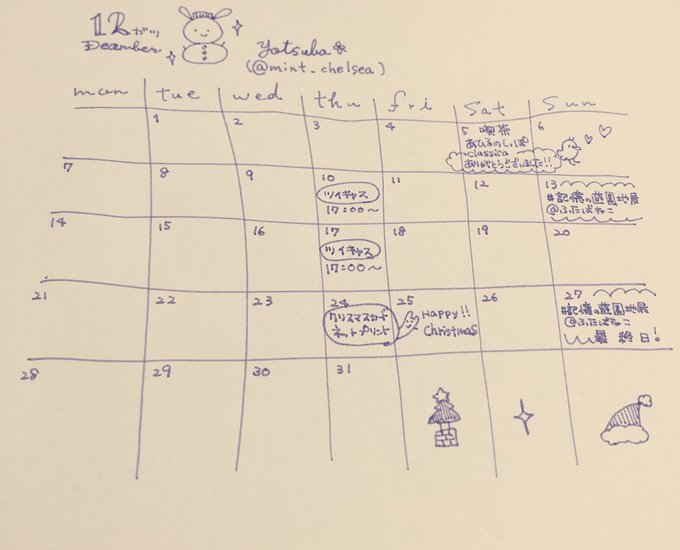 12ガツ
December
Yotsuba
(@mint_chelsea)
mon tue wed thu fri sat sun
1 2 3 4 5 6
喫茶
あひるのしっぽ
classica
ありがとうございました!!
7 8 9 10 11 12 13
ツイキャス
17:00~
#記憶の遊園地展
@ふたばねこ
14 15 16 17 18 19 20
ツイキャス
17:00~
21 22 23 24 25 26 27
クリスマスカード
ネットプリント
Happy!!
Christmas
#記憶の遊園地展
@ふたばねこ
最終日!
28 29 30 31